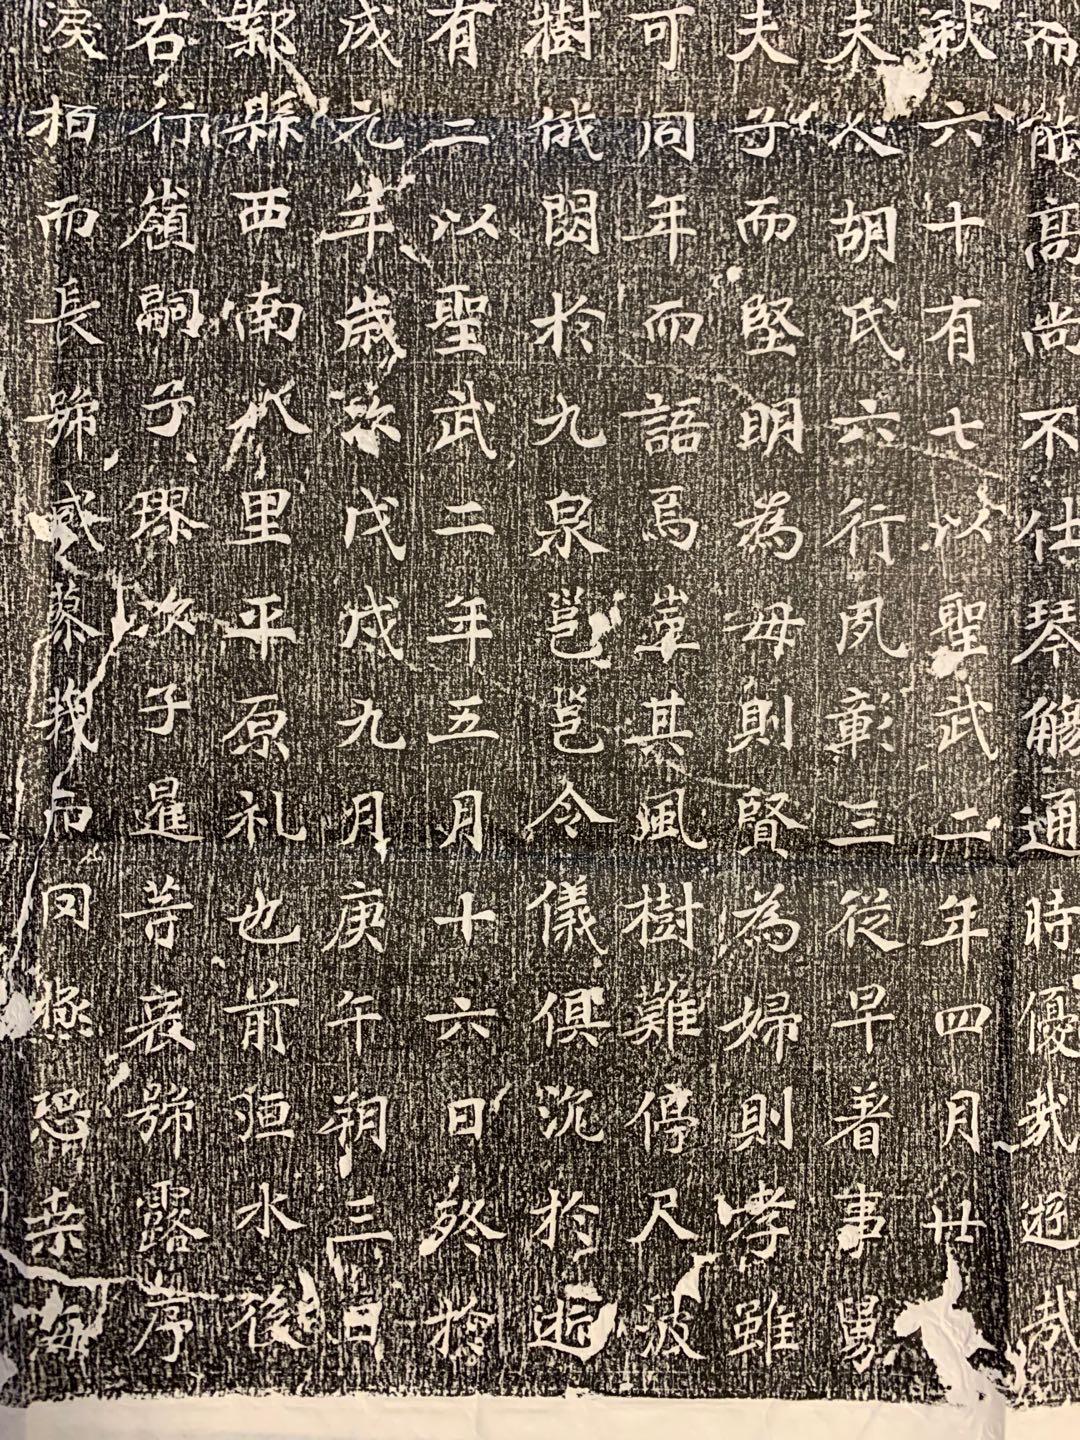 而能高尚不仕琴觴通時優哉遊哉
秋六十有七以聖武二年四月廿
夫人胡氏六行夙彰三從早著事舅
夫子而堅明為母則賢為婦則孝雖
可同年而語焉豈其風樹難停尺波
樹俄閟於九泉邕邕令儀俱沉於逝
有二以聖武二年五月十六日終於
成元年歲次戊戌九月庚午朔三日
鄴縣西南八里平原礼也前洹水後
右行嶺嗣子璆次子暹苦哀號露序
淚栢而長號感蓼莪而罔極恐桒海